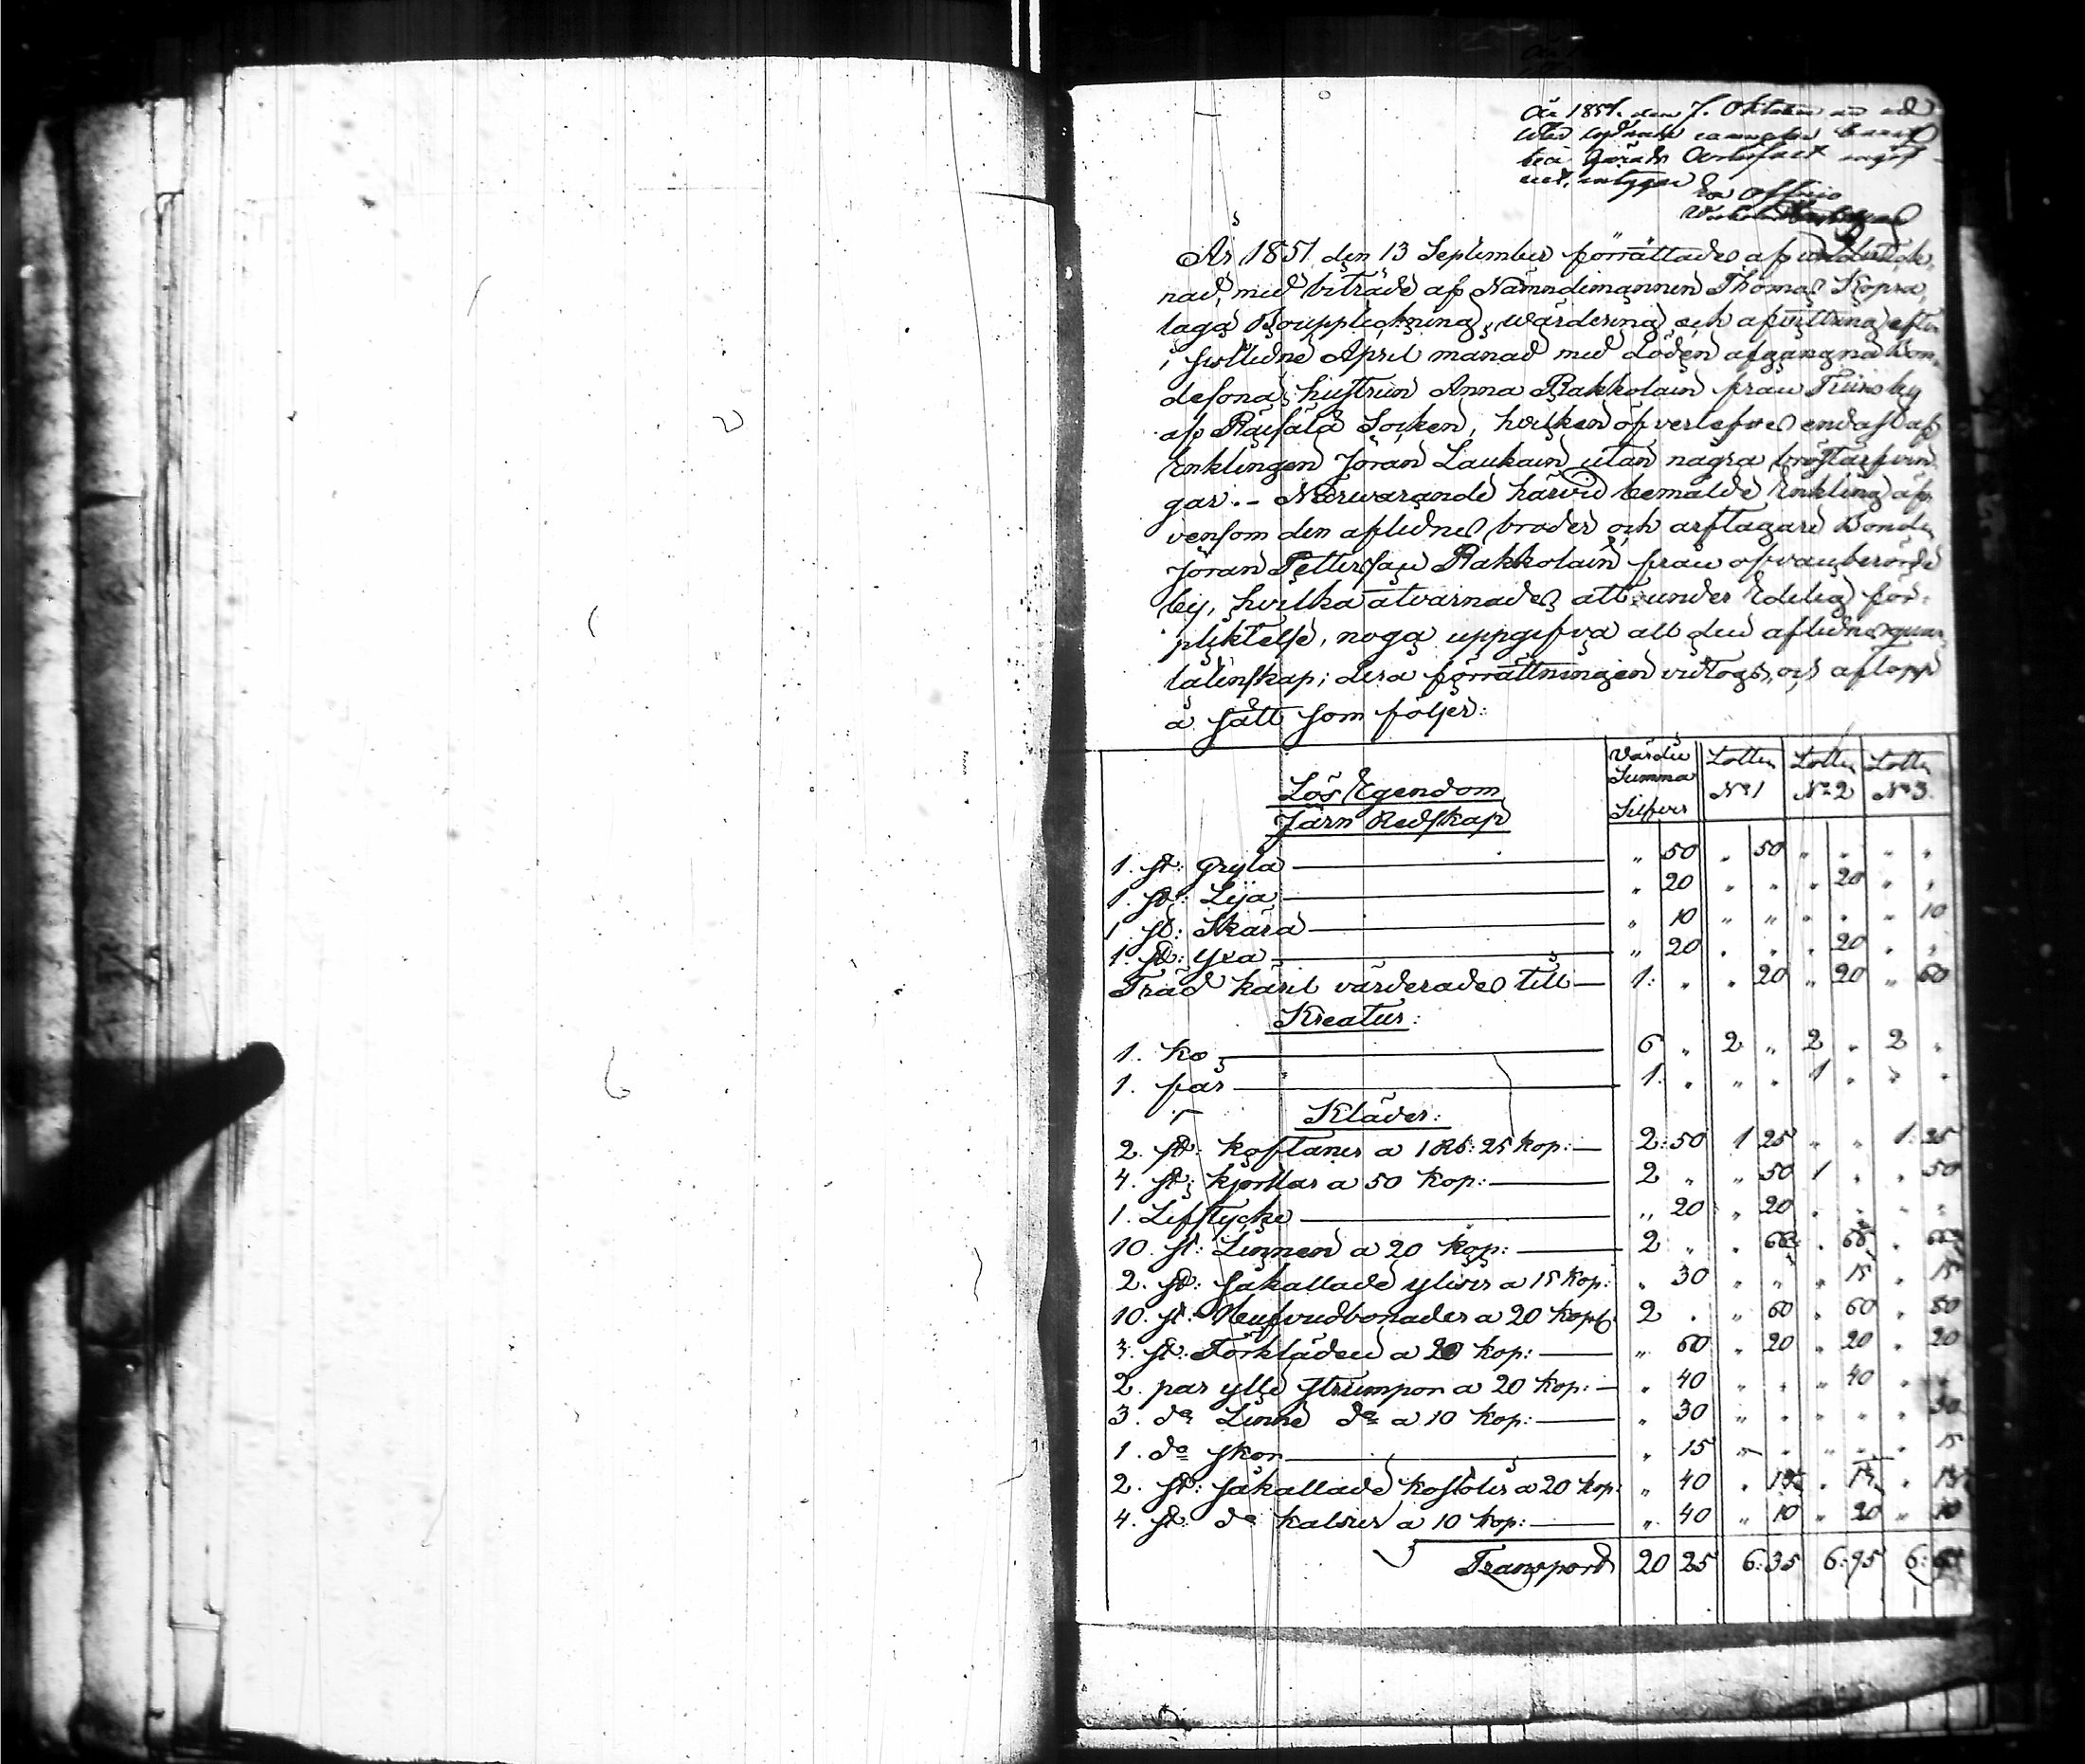 År 1851. den 7. Oktober
intygar Ex Officio
År 1851 den 13 September förrättades af undertek-
nad, med biträde af Nämndemannen Thomas Kopra,
laga Bouppteckning, wärdering och afvittring efter
i sistledne April månad med döden afgångna Bon-
desona hustrun Anna Rakkolain från Tiuris by
af Räisälä Socken, hvilken öfverlefves endast af
Enklingen Jöran Laukain utan några bröstarfvin-
gar. – Närwarande härvid bemälde Enkling äf-
vensom den aflidnes broder och arftagare Bonden
Jöran Pettersson Rakkolain från ofvanberörde
by, hvilka åtvarnades att under Edelig för-
pliktelse, noga uppgifva all den aflidnes qvar-
låtenskap; dera förrättningen vidtogs, och aflopp
å sätt som följer:
Lös Egendom Värdie Summa Silfver Lotten No 1 Lotten No 2 Lotten No 3.
Järn Redskap
1. st: Gryta " 50 " 50 " " " "
1. st: Lija " 20 " " " 20 " "
1 st: Skära " 10 " " " " " 10
1. st: Yxa " 20 " " " 20 " "
Träd käril värderades till 1: " " 20 " 20 " 60
Kreatur:
1. ko 6 " 2 " 2 " 2 "
1. får 1. " " " 1 " " "
Kläder:
2. st: koftaner a 1 Rb: 25 kop: 2: 50 1 25 " " 1: 25
4. st: kjortlar a 50 kop: 2 " " 50 1 " " 50
1. Lifstycke " 20 " 20 " " " "
10. st: Linnen a 20 kop: 2 " " 66 " 66 " 66
2. st: såkallade ylivis a 15 kop: " 30 " " " 15 " 15
10. st: Hufvudbonader a 20 kop 2 " " 60 " 60 " 80
3. st: Förkläden a 20 kop: " 60 " 20 " 20 " 20
2. par ylle strumpor a 20 kop: " 40 " " " 40 " "
3. do Linne do a 10 kop: " 30 " " " " " 30
1. do skor " 15 " " " " " 15
2. st: såkallade kostolis a 20 kop: " 40 " 13 " 13 " 13
4. st: do kalsier a 10 kop: " 40 " 10 " 20 " 10
Transport 20 25 6: 35 6: 95 6: